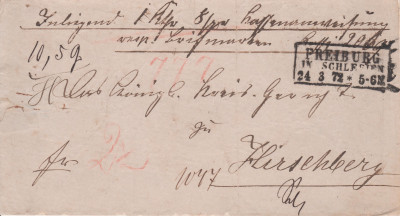 Inliegend 1 Thlr 8 sgr Kassenanweisung
resp. Briefmarken
10,59
FREIBURG
IN SCHLESIEN
24 3 72 * 5-6N
Das Königl. Kreis-Gericht
zu
fr.
Hirschberg